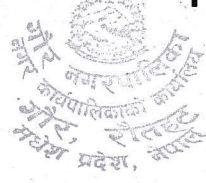 नगरपालिका
कार्यपालिकाको कार्यालय
गौर, रौतहट
मधेश प्रदेश, नेपाल